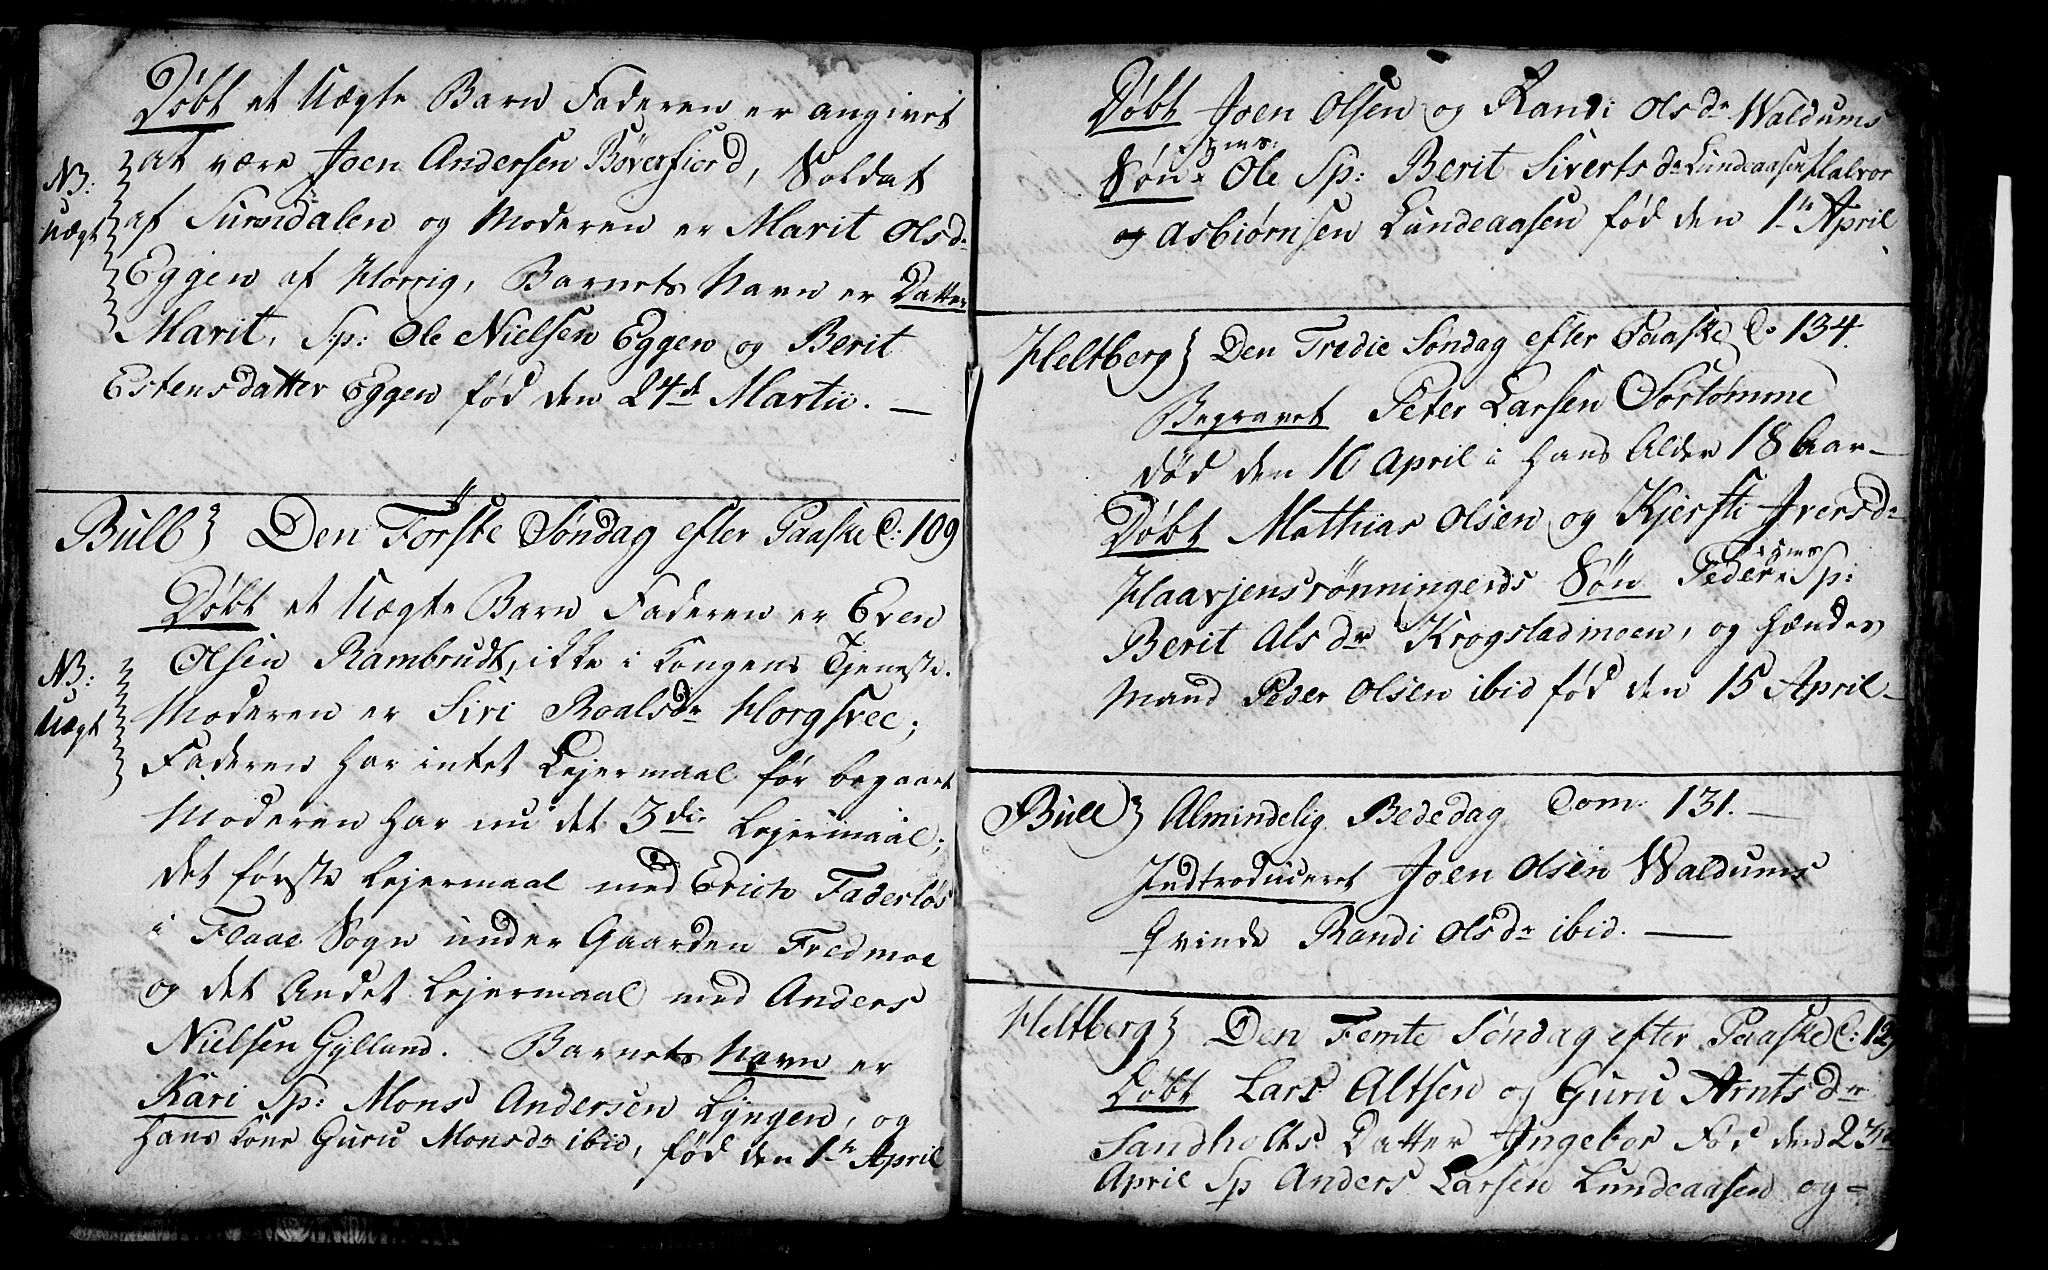 Døbt et Uægte Barn Faderen er angivet
at være Joen Andersen Bøverfiord, Soldat
NB:
Uægt
af Surndalen og Moderen er Marit Olsd:
Eggen af Horrig, Barnets Navn er Datter
Marit, Sp: Ole Nielsen Eggen og Berit
Estensdatter Eggen fød den 24de Martii. —
Bull} Den Første Søndag efter Paaske C: 109
Døbt et Uægte Barn Faderen er Even
Olsen Rambrudt, ikke i Kongens Tjeneste.
NB:
Uægt
Moderen er Siri Roalsdr Horgsvee;
Faderen har intet Lejermaal før begaaet
Moderen har nu det 3die Lejermaal;
det første Lejermaal med Erich Faderløs
i Flaae Sogn under Gaarden Fredmoe
og det Andet Lejermaal med Anders
Nielsen Gylland. Barnets Navn er
Kari Sp: Mons Andersen Lyngen, og
Hans Kone Guru Monsdr ibid, fød den 1te April
Døbt Joen Olsen og Randi Olsdr Waldums
Søn Ole Sp: Berit Sivertsdr Lundeaasen Halvor
og Asbiørnsen Lundeaasen fød den 1te April
Heltberg} Den Tredie Søndag efter Paaske C: 134.
Begravet Peter Larsen Sortømme
død den 16 April i Hans Alder 18 Aar —
Døbt Mathias Olsen og Kjersti Iversdr
Haarjensrønningerds Søn Peder Sp:
Berit Alsdr Krogstadmoen, og Hændes
Mand Peder Olsen ibid fød den 15 April —
Bull} Almindelig Bededag Com: 131. —
Indtroduceret Joen Olsen Waldums
Qvinde Randi Olsdr ibid. —
Heltberg} Den Femte Søndag efter Paaske C: 129
Døbt Lars Altsen og Guru Arntsdr
Sandholts Datter Ingebor Fød den 23de
April Sp Anders Larsen Lundeaasen og —